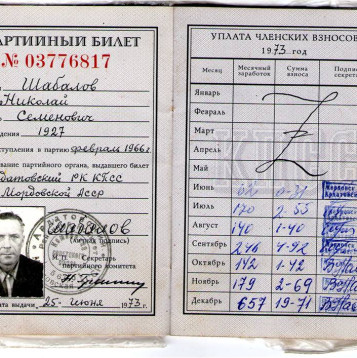 АРТИЙНЫЙ БИЛЕТ
№ 03776817
Шабалов
Николай
Семенович
дения 1927
ступления в партию февраль 1966г
вание партийного органа, выдавшего билет
датовский РК КПСС
Мордовской АССР
(личная подпись)
М. П. Секретарь
партийного комитета
та выдачи 25 июня 1973 г.
УПЛАТА ЧЛЕНСКИХ ВЗНОСОВ
1973 год
Месяц Месячный заработок Сумма взноса Подпись секретаря
Январь
Февраль
Март
Апрель
Май
Июнь 0-71
Июль 170 2-55
Август 140 1-40
Сентябрь 246 4-92
Октябрь 142 1-42
Ноябрь 179 2-69
Декабрь 657 19-71